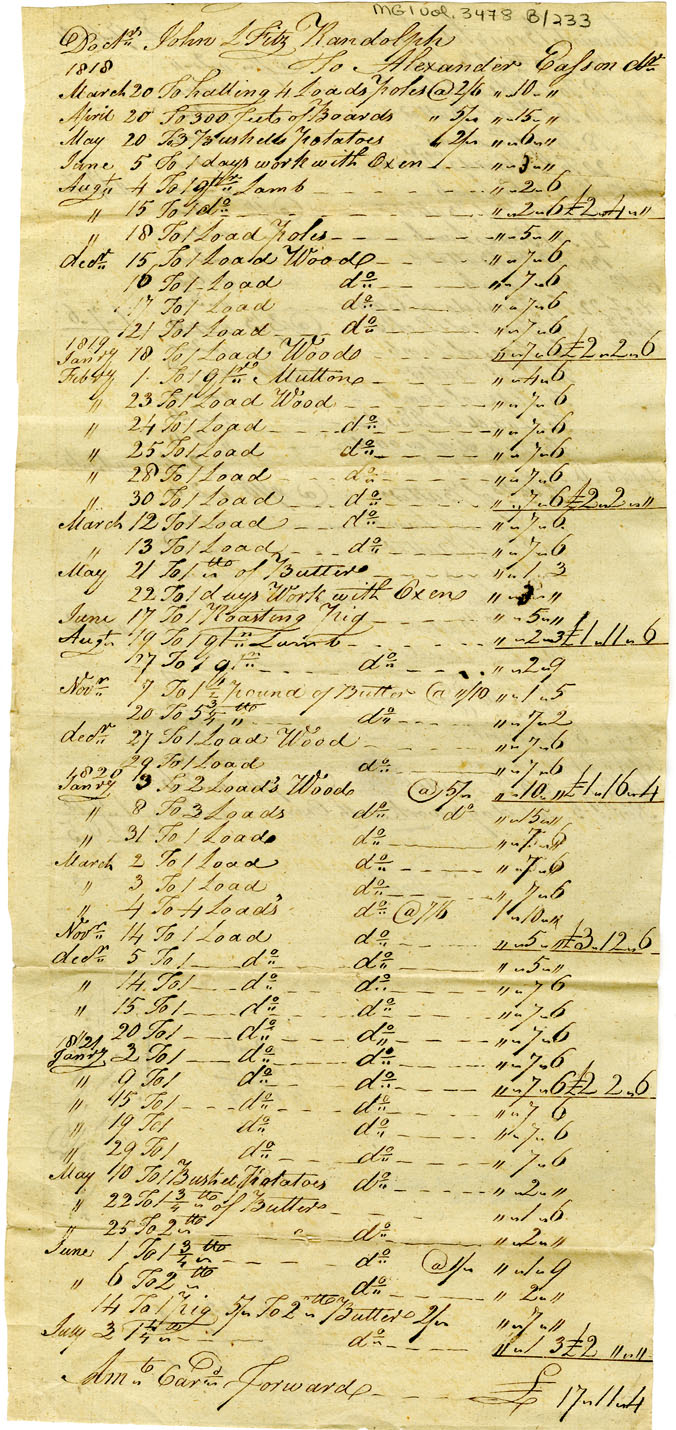 MG1 vol. 3478 B/233
Doctr. John L Fitz Randolph
1818 To Alexander Easson dr
March 20 To halling 4 Loads Poles @ 2/6 " " 10 " "
April 20 To 300 feets of Boards " 5/" " " 15 " "
May 20 To 3 Bushells Potatoes " 2/" " " 6 " "
June 5 To 1 days work with Oxen " "
Augt 4 To 1 qtr Lamb " " 2 " 6
" 15 To 1 do " " 2 " 6 £2 " 4 " "
" 18 To 1 Load Poles " " 5 " "
decr 15 To 1 Load Wood " " 7 " 6
16 To 1 Load do " " 7 " 6
17 To 1 Load " " 7 " 6
21 To 1 Load do " " 7 " 6
1819
Janry 18 To 1 Load Wood " " 7 " 6 £2 " 2 " 6
Febry 1 To 1 qtr Mutton " " 4 " 6
" 23 To 1 Load Wood " " 7 " 6
" 24 To 1 Load do " " 7 " 6
" 25 To 1 Load do " " 7 " 6
" 28 To 1 Load do " " 7 " 6
" 30 To 1 Load do " " 7 " 6 £2 " 2 " "
March 12 To 1 Load do " " 7 " 6
" 13 To 1 Load do " " 7 " 6
May 21 To 1 lb of Butter " " 1 " 3
22 To 1 days Work with Oxen " "
June 17 To 1 Roasting Pig " " 5 " "
Augt 19 To 1 qtr Lamb " " 2 " 3 £1 " 11 " 6
27 To 1 qtr do " " 2 " 9
Novr 7 To 1 1/2 Pound of Butter @ "/10 " " 1 " 5
20 To 5 3/4 lb do " " 7 " 2
decr 27 To 1 Load Wood " " 7 " 6
29 To 1 Load do " " 7 " 6
1820
Janry 3 To 2 Load's Wood @ 5/" " " 10 " " £1 " 16 " 4
" 8 To 3 Loads do do " " 15 " "
" 31 To 1 Load do " " 7 " 6
March 2 To 1 Load do " " 7 " 6
" 3 To 1 Load do " " 7 " 6
" 4 To 4 Load's do @ 7/6 1 " 10 " "
Novr 14 To 1 Load do " " 5 " " £3 " 12 " 6
decr 5 To 1 do do " " 5 " "
" 14 To 1 do do " " 7 " 6
" 15 To 1 do do " " 7 " 6
" 20 To 1 do do " " 7 " 6
1821
Janry 2 To 1 do do " " 7 " 6
" 9 To 1 do do " " 7 " 6 £2 2 " 6
" 15 To 1 do do " " 7 " 6
" 19 To 1 do do " " 7 " 6
" 29 To 1 do do " " 7 " 6
May 10 To 1 Bushel Potatoes do " " 2 " "
" 22 To 1 3/4 lb of Butter " " 1 " 6
" 25 To 2 lb do " " 2 " "
June 1 To 1 3/4 lb do @ 1/" " " 1 " 9
" 6 To 2 lb do " " 2 " "
14 To 1 Pig 5/" To 2 lb Butter 2/" " " 7 " "
July 3 1 1/4 lb do " " 1 3 £2 " " "
Amt Card Forward £ 17 " 11 " 4